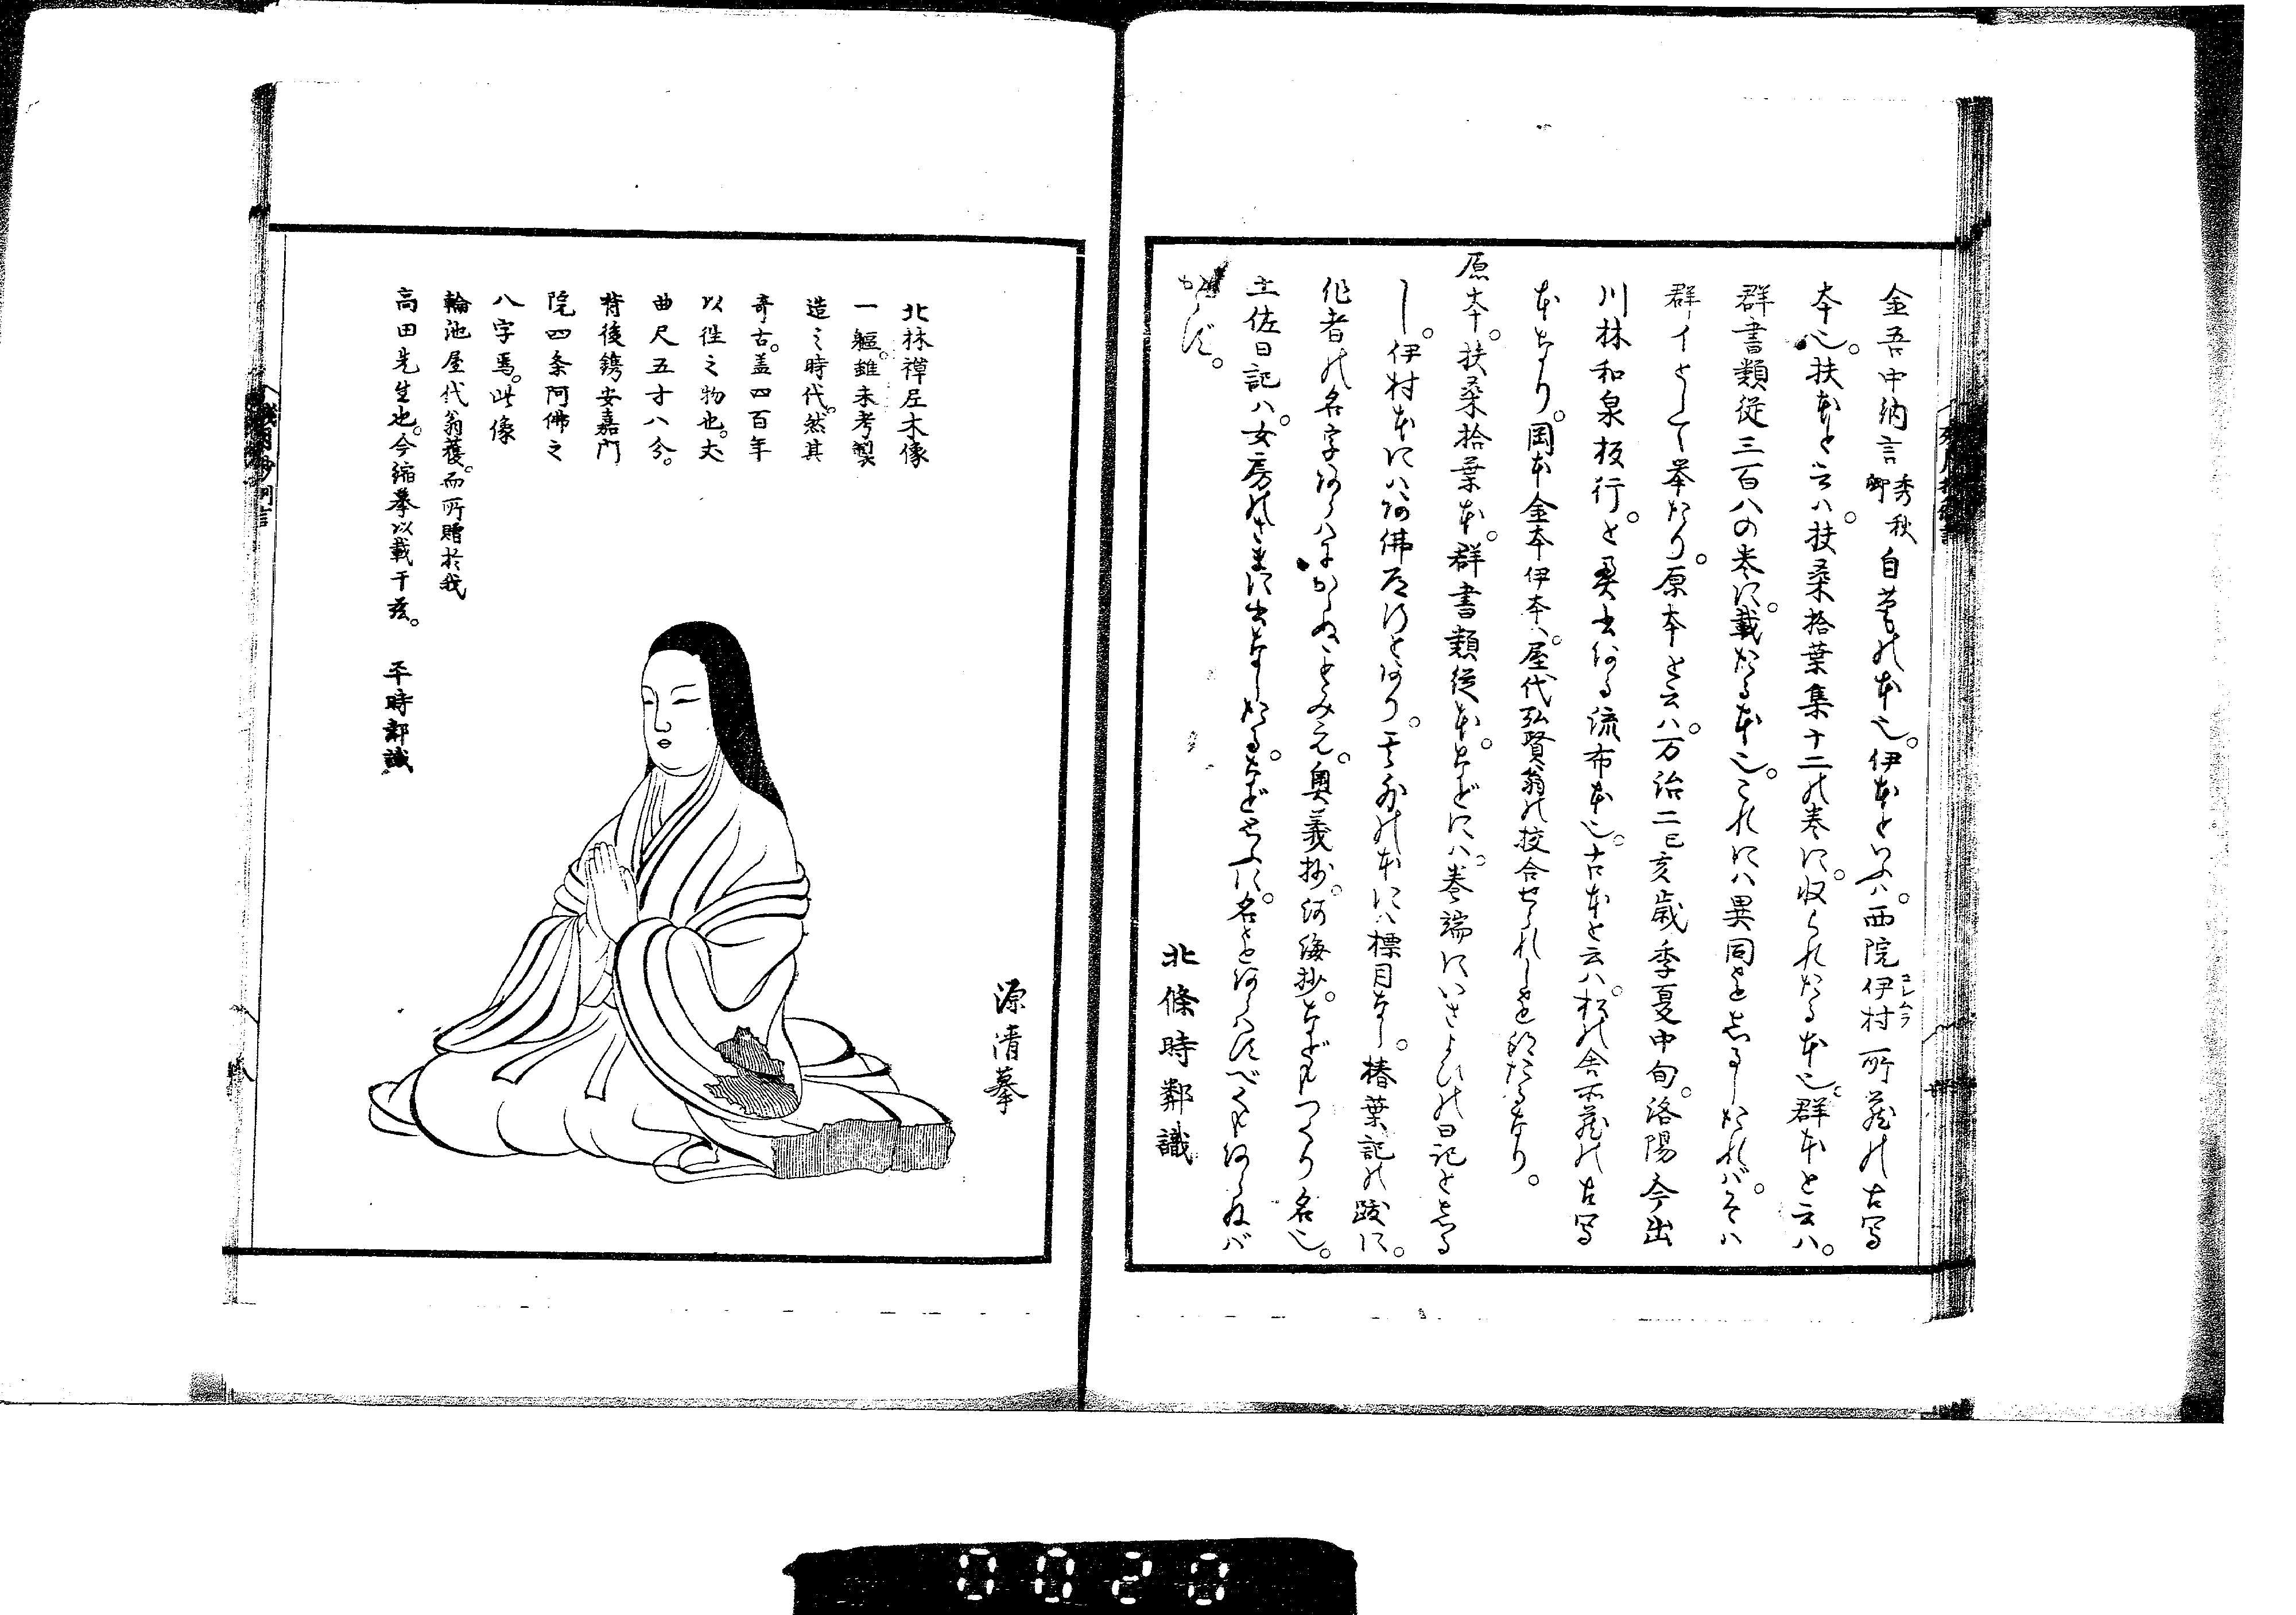 金吾中納言秀秋卿自筆の本也。伊本といふハ。西院伊村所蔵の古写
コレムラ
本也。扶本と云ハ。扶桑拾葉集十二の巻に。収られたる本也。群本と云ハ。
群書類従三百八の巻に。載たる本也。これにハ異同をしるしたれバ。そハ
群イとして挙たり。原本と云ハ。万治二己亥歳季夏中旬。洛陽今出
川林和泉板行。と奥書ある流布本也。古本と云ハ。松の舎所蔵の古写
本なり。岡本金本伊本ハ。屋代弘賢翁の挍合せられしを得たるなり。
原本。扶桑拾葉本。群書類従本。などにハ。巻端にいさよひの日記としる
し。伊村本にハ阿佛房紀行とあり。其外の本にハ標目なし。椿葉記の跋に。
作者の名字あらハにかゝぬことみえ。奥義抄。河海抄。などもつくり名也。
土佐日記ハ。女房のさまに出なしたる。などやうに。名をあらハすべくもあらぬバ
かりに。
北條時鄰識
源清摹
北林禪尼木像
一軀。雖未考製
造之時代。然其
奇古。盖四百年
以徃之物也。丈
曲尺五寸八分。
背後鐫安嘉門
院四条阿佛之
八字焉。此像
輪池屋代翁獲。而所贈於我
高田先生也。今縮摹以載于茲。
平時鄰識
0020